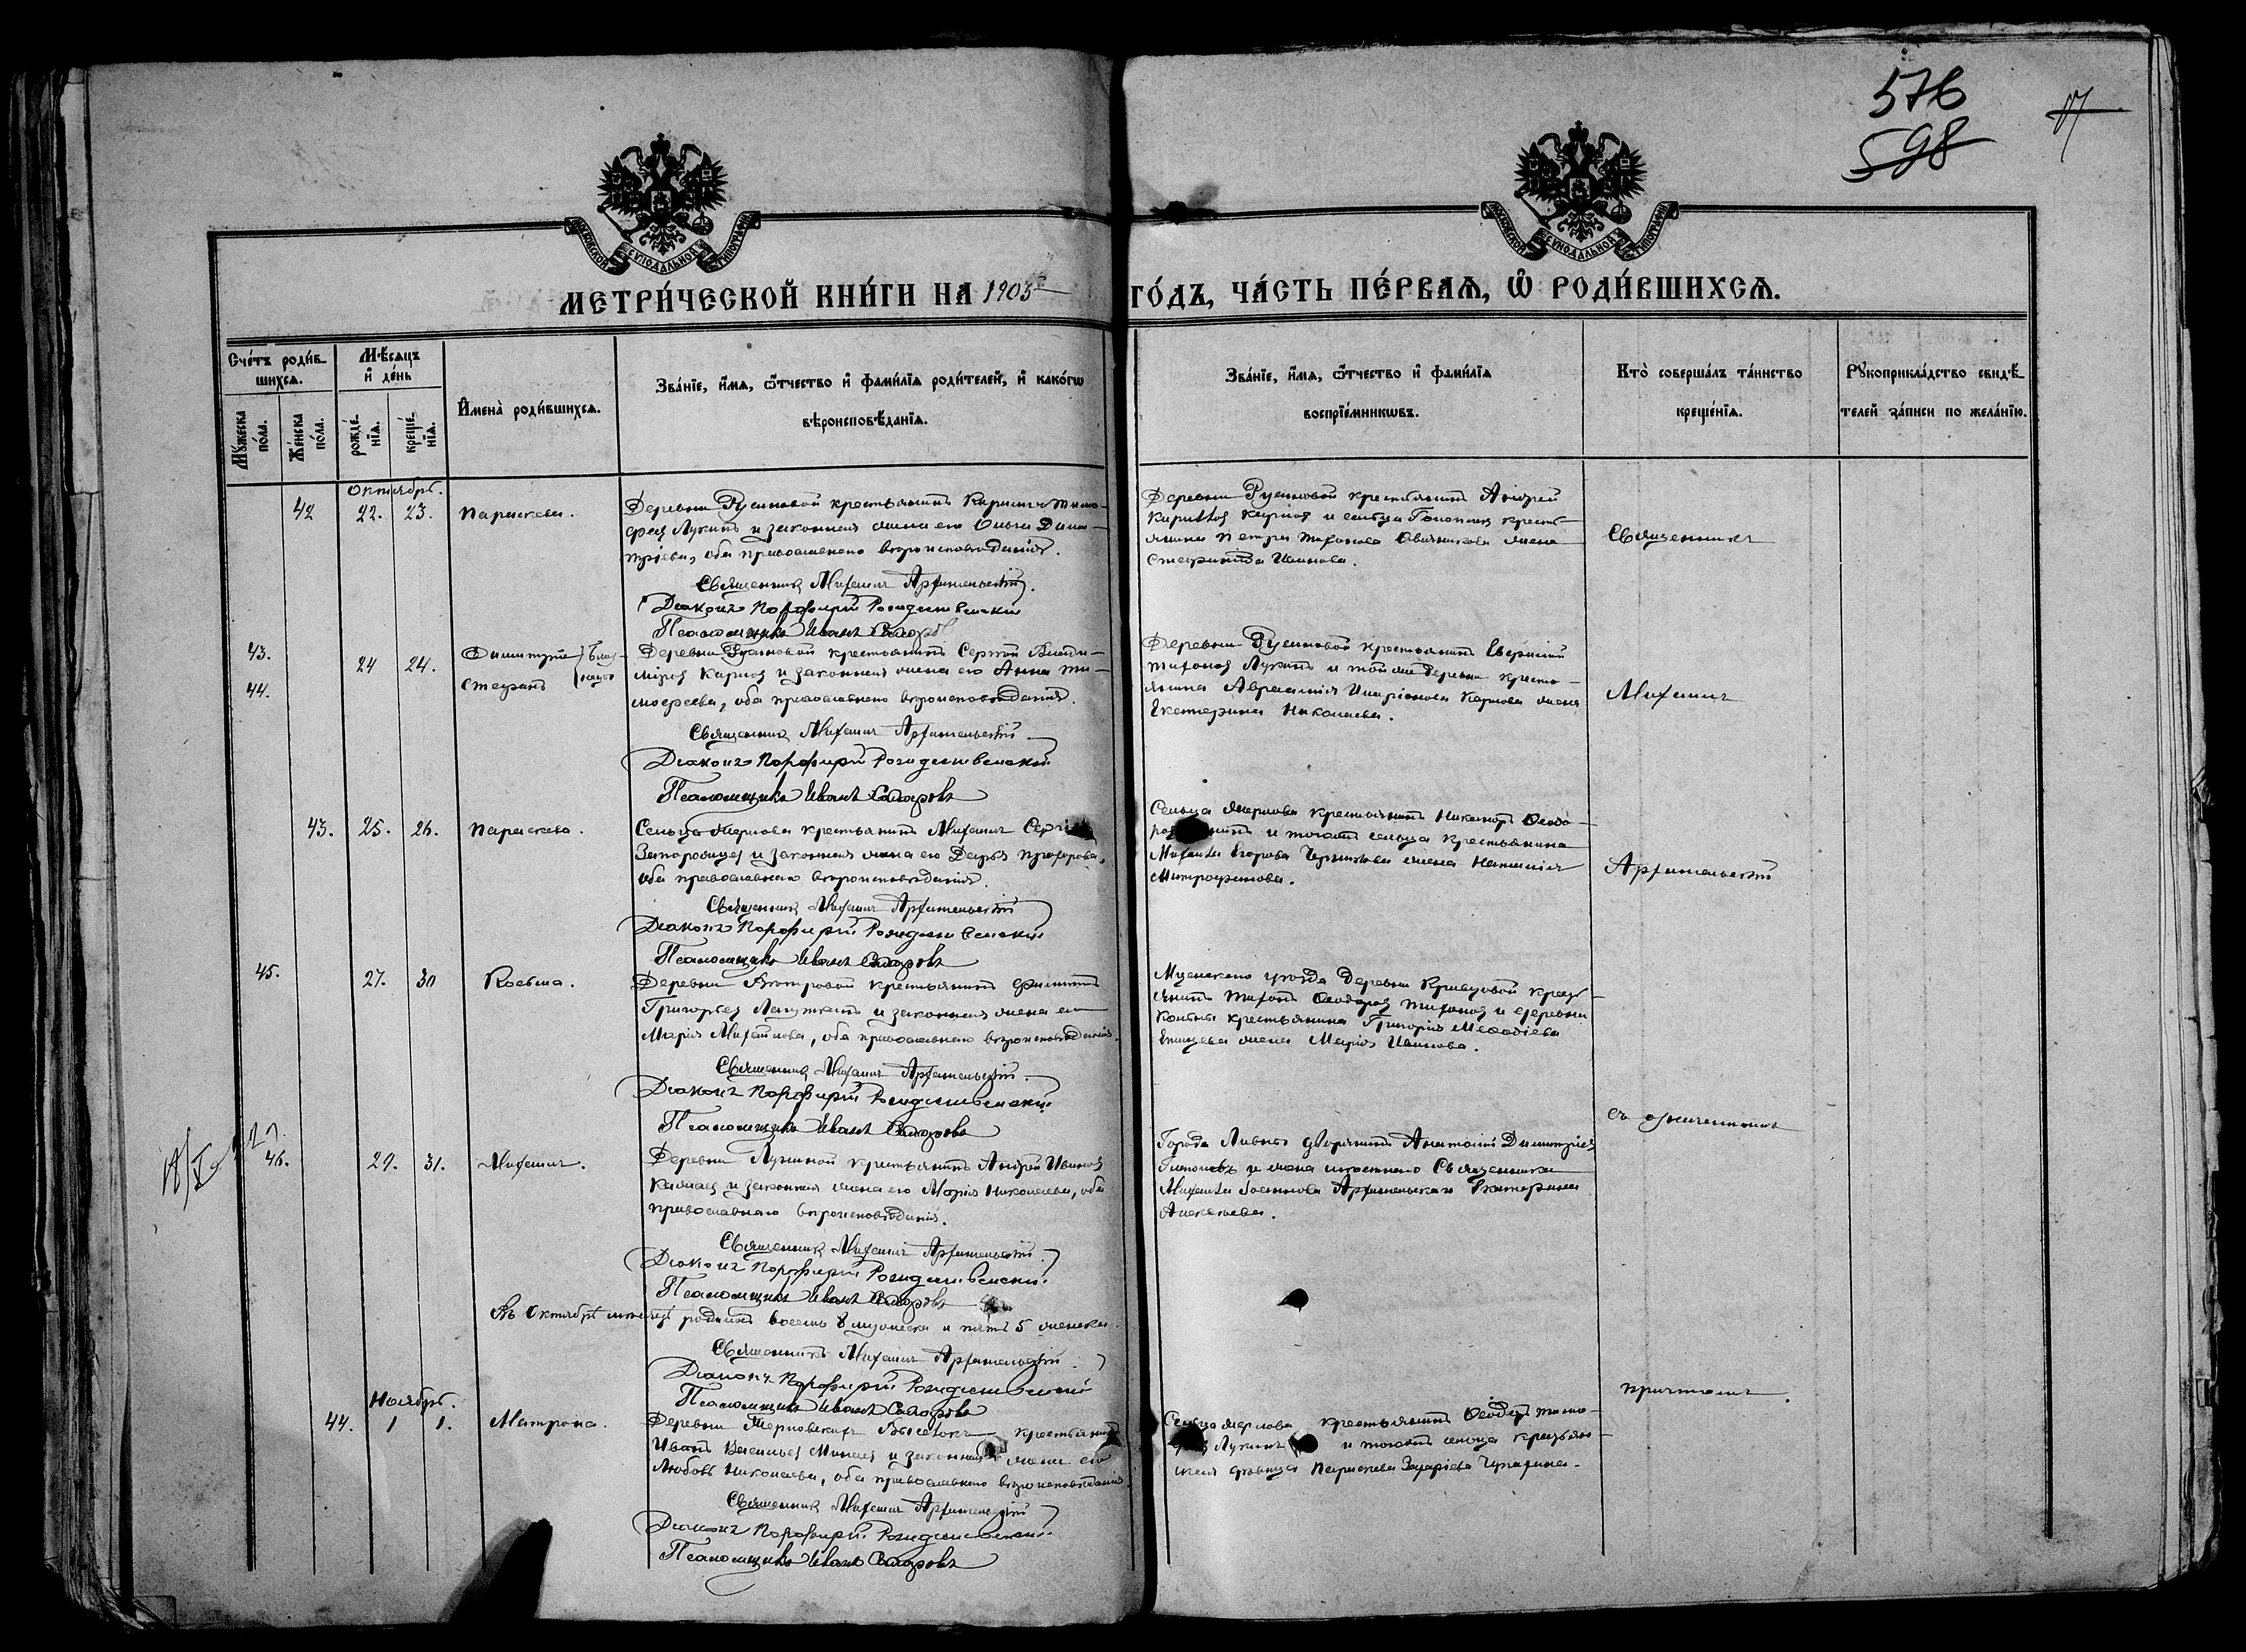 576
598
МОСКОВСКОЙ СѴНОДАЛЬНОЙ ТИПОГРАФІИ
МОСКОВСКОЙ СѴНОДАЛЬНОЙ ТИПОГРАФІИ
МЕТРИ́ЧЕСКОЙ КНИ́ГИ НА 1905 ГО́ДЪ, ЧА́СТЬ ПЕ́РВАѦ, Ѡ҆ РОДИ́ВШИХСѦ.
Сче́тъ роди́в-
шихсѧ.
Мѣ́сѧцъ
и҆ де́нь
Мꙋ́жеска
по́ла.
Же́нска
по́ла.
рожде́-
нїѧ.
креще́-
нїѧ.
И҆мена̀ роди́вшихсѧ.
Зва́нїе, и҆́мѧ, ѻ҆́тчество и҆ фами́лїѧ роди́телей, и҆ како́гѡ
вѣроисповѣ́данїѧ.
Зва́нїе, и҆́мѧ, ѻ҆́тчество и҆ фами́лїѧ
воспрїе́мникѡвъ.
Кто̀ соверша́лъ та́инство
креще́нїѧ.
Рꙋкоприкла́дство свидѣ́-
телей за́писи по жела́нїю.
Октябрь.
42 22. 23. Параскева.
Деревни Русиновой крестьянинъ Кириллъ Тимо-
феев Лукинъ и законная жена его Ольга Дими-
тріева, оба православнаго вѣроисповѣданія.
Священникъ Михаилъ Архангельскій.
Діаконъ Порфирій Рождественскій
Псаломщикъ Иванъ
Деревни Русиновой крестьянинъ Андрей
Кириллов Карпов и сельца крестья-
нина Петра Тихонова Овчинникова жена
Стефанида Иванова.
Священникъ
43. 24 24. Филиппъ Близ-
44. Стефанъ нецы
Деревни Русиновой крестьянинъ Сергѣй Влади-
міров Карпов и законная жена его Анна Ти-
моѳеева, оба православнаго вѣроисповѣданія.
Священникъ Михаилъ Архангельскій
Діаконъ Порфирій Рождественскій
Псаломщикъ Иванъ
Деревни Русиновой крестьянинъ Евгеній
Тихонов Лукинъ и той же деревни кресть-
янина Авраамія Иларіонова Карпова жена
Екатерина Николаева.
Михаилъ
43. 25. 26. Параскева.
Сельца крестьянинъ Михаилъ
и законная жена его Дарья Прохорова,
оба православнаго вѣроисповѣданія.
Священникъ Михаилъ Архангельскій
Діаконъ Порфирій Рождественскій
Псаломщикъ Иванъ
Сельца крестьянинъ Никаноръ Ѳеодо-
и тогожъ сельца крестьянина
Михаила Егорова жена Наталія
Митрофанова.
Архангельскій
45. 27. 30 Косьма.
Деревни крестьянинъ Филиппъ
Григорьев и законная жена его
Марія Михайлова, оба православнаго вѣроисповѣданія.
Священникъ Михаилъ Архангельскій.
Діаконъ Порфирій Рождественскій
Псаломщикъ Иванъ
Мценскаго уѣзда деревни кресть-
янинъ Тихонъ Ѳеодоров Тихонов и деревни
крестьянина Григорія Меѳодіева
жена Марія Иванова.
46. 29. 31. Михаилъ.
Деревни Луниной крестьянинъ Андрей Иванов
и законная жена его Марія Николаева, оба
православнаго вѣроисповѣданія.
Священникъ Михаилъ Архангельскій.
Діаконъ Порфирій Рождественскій.
Псаломщикъ Иванъ
съ
Города Ливны дворянинъ Анатолій Димитріев
и жена мѣстнаго Священника
Михаила Іоаннова Архангельскаго Екатерина
Алексѣева.
Въ Октябрѣ мѣсяцѣ родилось восемь 8 мужеска и пять 5 женска.
Священникъ Михаилъ Архангельскій.
Діаконъ Порфирій Рождественскій
Псаломщикъ Иванъ
Ноябрь.
44. 1 1. Матрона.
Деревни крестьянинъ
Иванъ Васильев Минаев и законная жена его
Любовь Николаева, оба православнаго вѣроисповѣданія.
Священникъ Михаилъ Архангельскій
Діаконъ Порфирій Рождественскій
Псаломщикъ Иванъ
Сельца крестьянинъ Ѳеодоръ Тимо-
Лукинъ и тогожъ сельца крестьян-
ская дѣвица Параскева Захаріева
причтомъ.